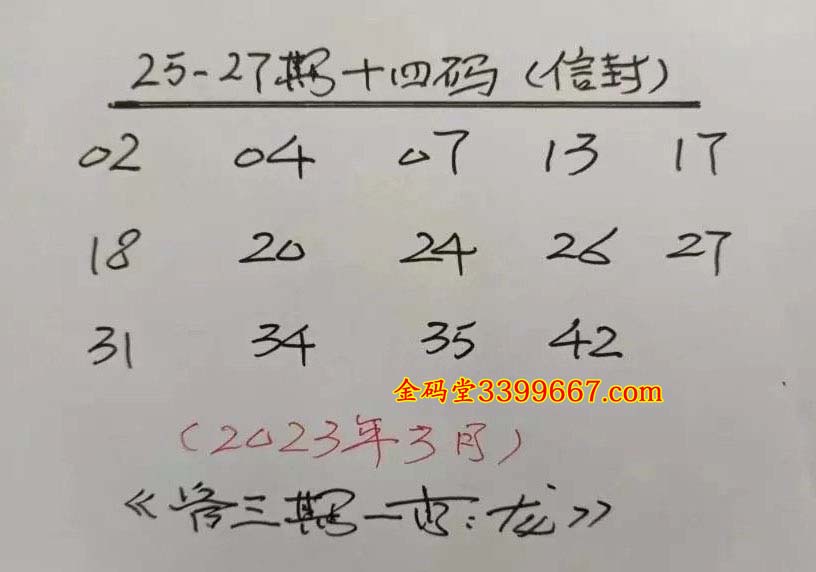 25-27期十四码（信封）
02 04 07 13 17
18 20 24 26 27
31 34 35 42
金码堂3399667.com
（2023年3月）
《管三期一肖:龙》